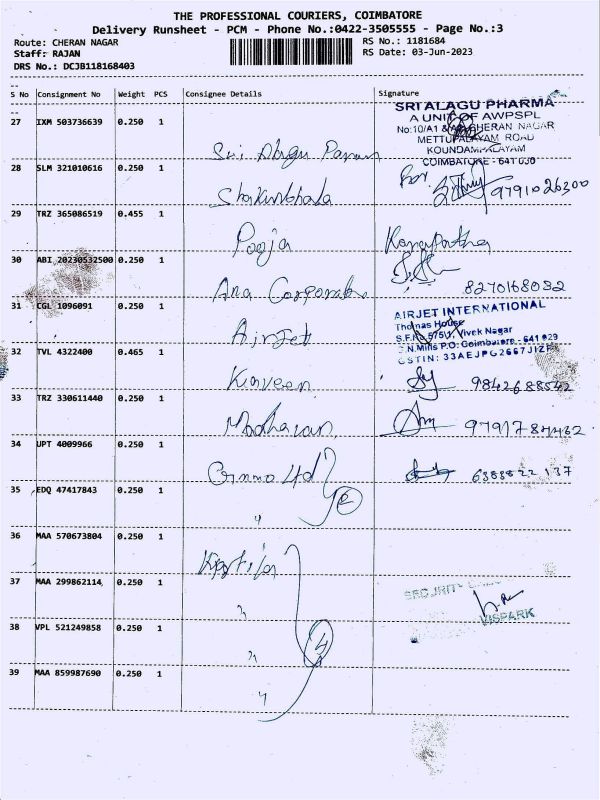 THE PROFESSIONAL COURIERS, COIMBATORE
Delivery Runsheet - PCM - Phone No.:0422-3505555 - Page No.:3
Route: CHERAN NAGAR
RS No.: 1181684
Staff: RAJAN
RS Date: 03-Jun-2023
DRS No.: DCJB118168403
S No Consignment No Weight PCS Consignee Details Signature
SRI ALAGU PHARMA
A UNIT OF AWPSPL
27 IXM 503736639 0.250 1
CHERAN NAGAR
METTUPALAYAM ROAD
KOUNDAMPALAYAM
COIMBATORE - 641 030
Sri Alagu
28 SLM 321010616 0.250 1
For 9791026300
29 TRZ 365086519 0.455 1
Pooja
30 ABI 20230532500 0.250 1
8270168032
Ana Corporate
31 CGL 1096091 0.250 1
AIRJET INTERNATIONAL
Thomas House
S.F.No.575/1, Vivek Nagar
Airjet
S.N.Mills P.O. Coimbatore - 641 029
32 TVL 4322400 0.465 1
Kaveen
33 TRZ 330611440 0.250 1
Madhavan
34 UPT 4009966 0.250 1
35 EDQ 47417843 0.250 1
"
36 MAA 570673804 0.250 1
37 MAA 299862114 0.250 1
"
VISPARK
38 VPL 521249858 0.250 1
"
39 MAA 859987690 0.250 1
"